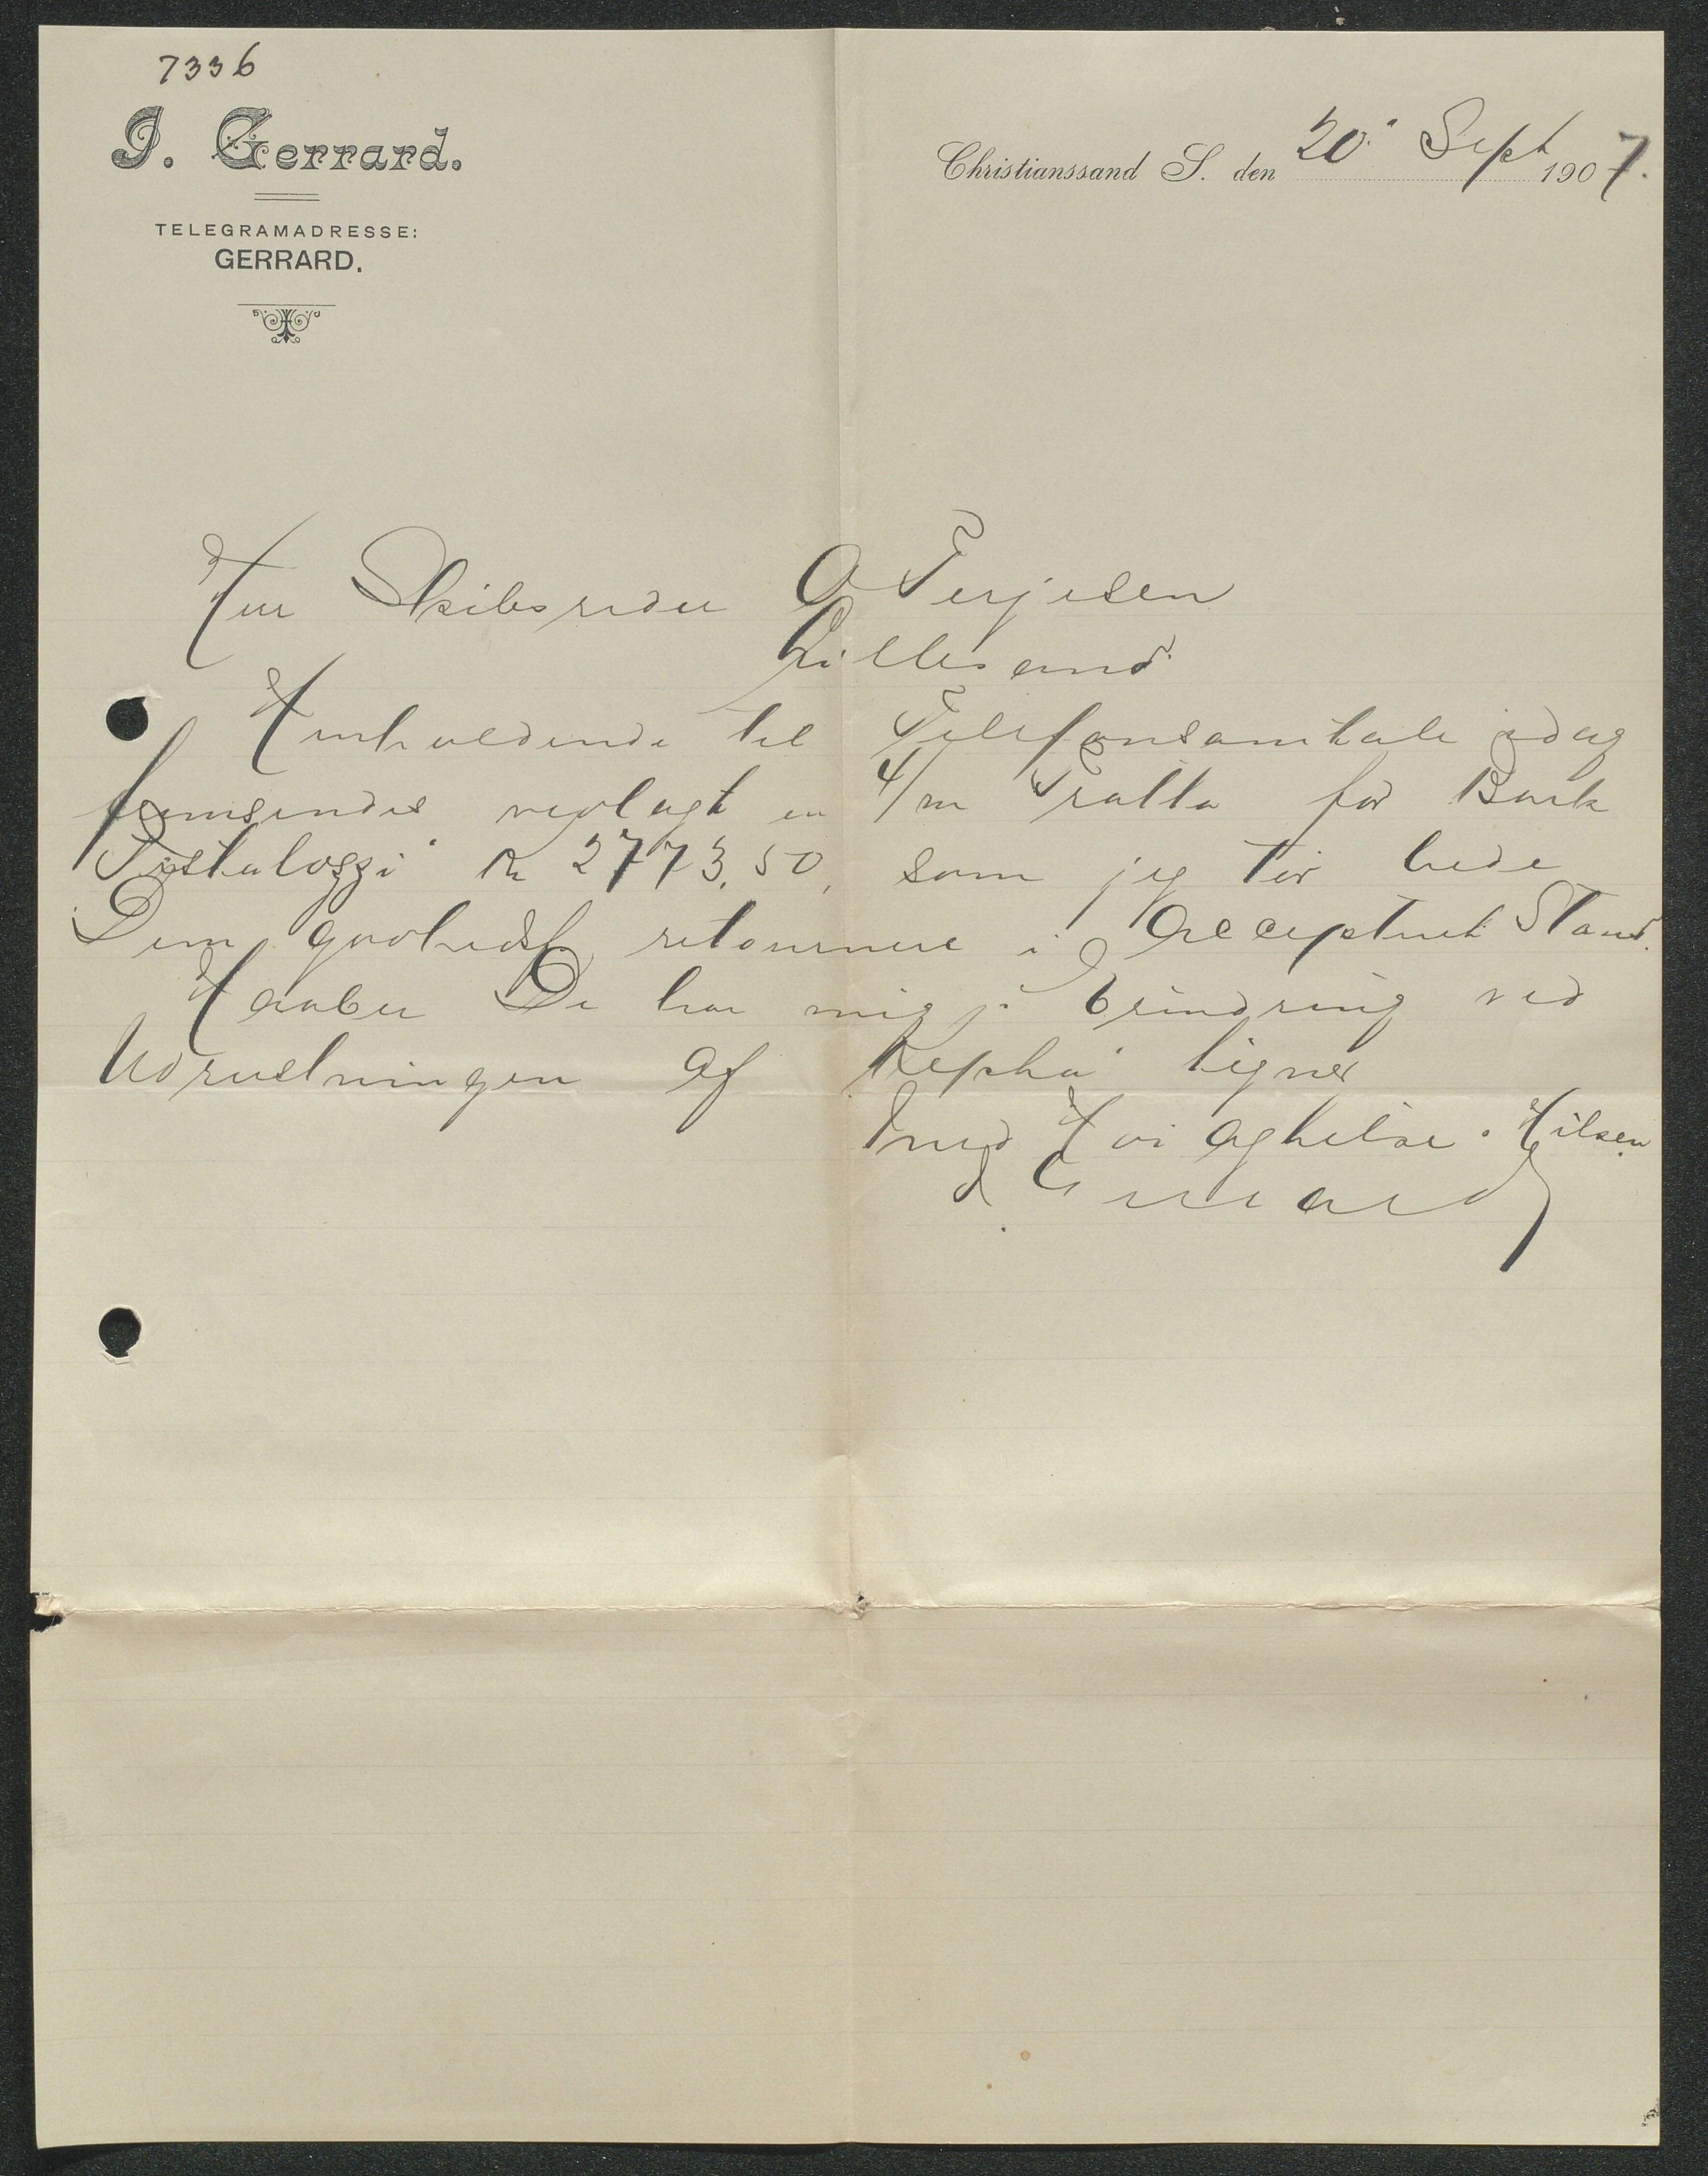 7336
J. Gerrard.
TELEGRAMADRESSE:
GERRARD.
Christianssand S. den 20' Sept 1907.
Herr Skibsreder O Terjesen
Lillesand
Henholdende til Telefonsamtale idag
fremsendes vedlagt en 4/m Tratta for Bark
Pestalozzi" Kr 2773.50, som jeg tør bede
Dem godhedsf retournere i Accepteret Stand.
Haaber De har mig i Erindring ved
Udrustningen af Kepha"
Med Høiagtelse. Hilsen
J Gerrard